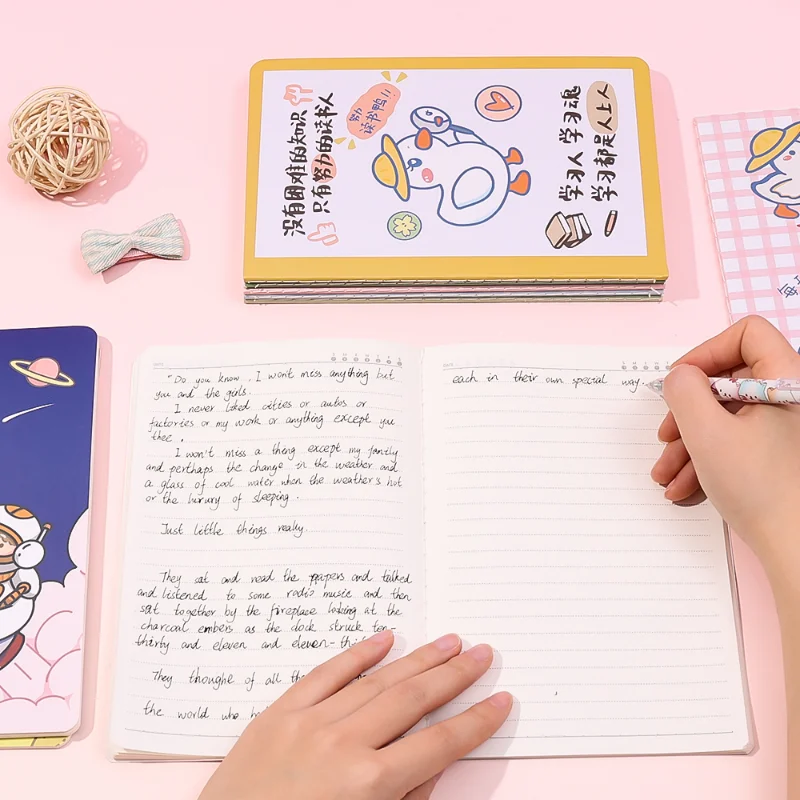 没有困难的知识
只有努力的读书人
努力
读书鸭!!
学习人 学习魂
学习都是人上人
"Do you know, I won't miss anything but
you and the girls.
I never liked cities or autos or
factories or my work or anything except you
thee.
I won't miss a thing except my family
and perhaps the change in the weather and
a glass of cool water when the weather's hot
or the luxury of sleeping.
Just little things really.
They sat and read the papers and talked
and listened to some radio music and then
sat together by the fireplace looking at the
charcoal embers as the clock struck ten-
thirty and eleven and eleven-thi
They thoughe of all the
the world who ha
each in their own special way.